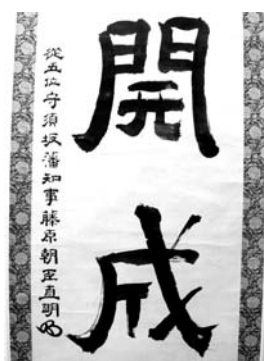 開成
従五位守須坂藩知事藤原朝臣直明